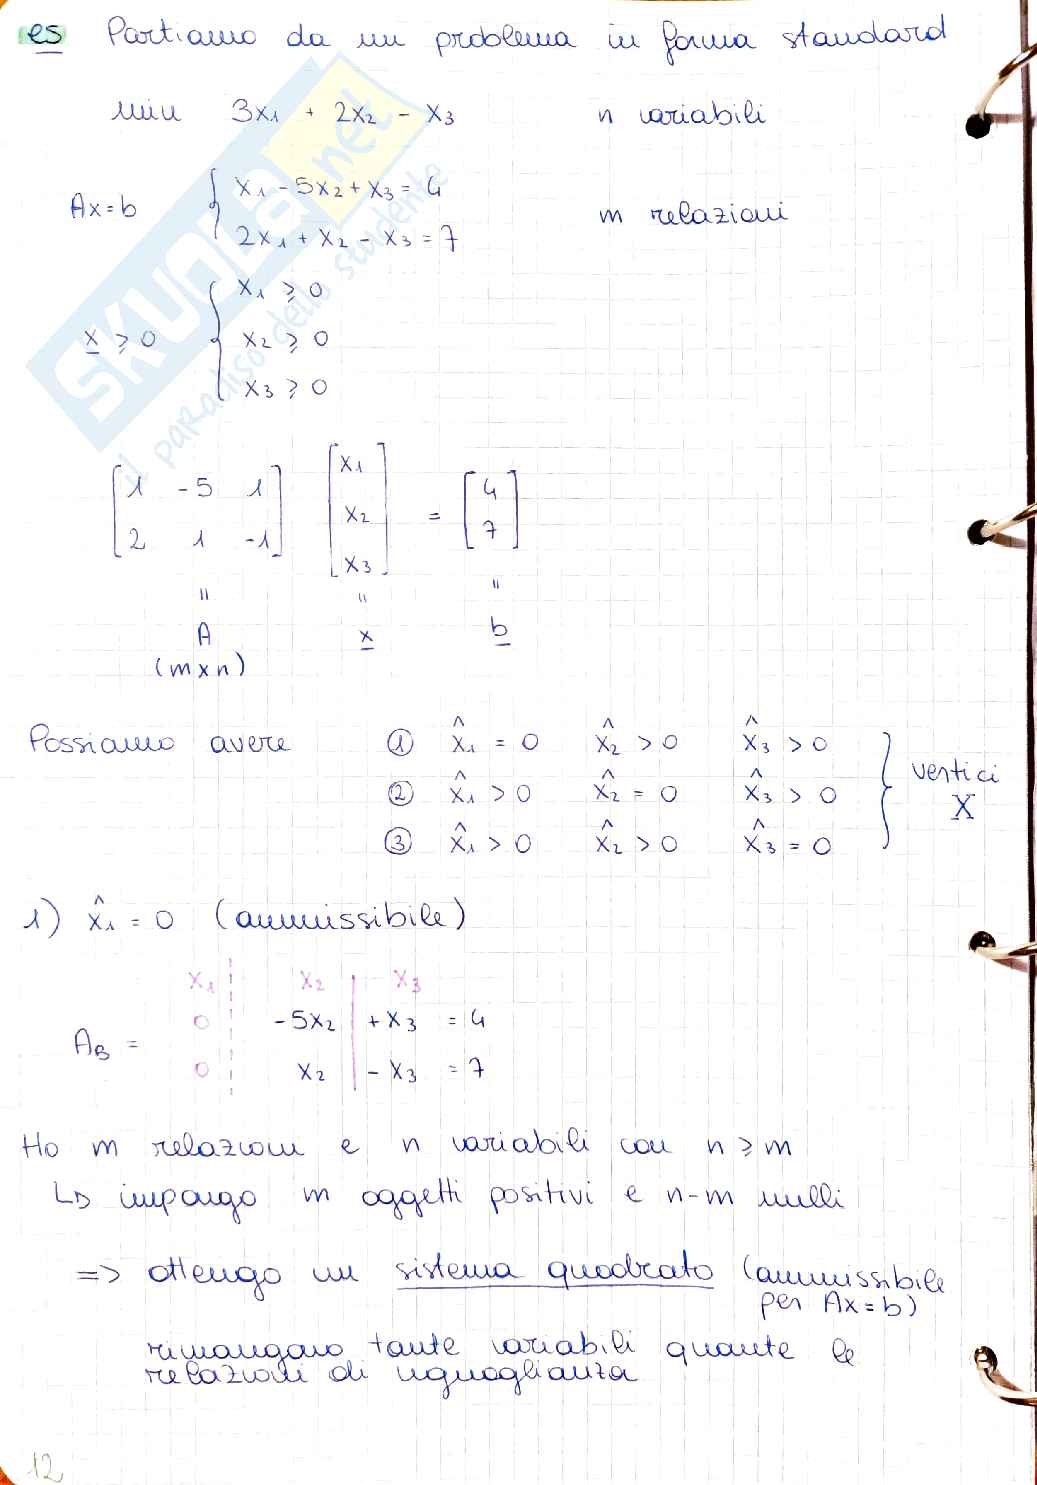 es Partiamo da un problema in forma standard
min 3x₁ + 2x₂ - x₃ n variabili
Ax=b { x₁ - 5x₂ + x₃ = 4
2x₁ + x₂ - x₃ = 7 m relazioni
x ≥ 0 { x₁ ≥ 0
x₂ ≥ 0
x₃ ≥ 0
[1 -5 1 [x₁ [4
2 1 -1] x₂ = 7]
x₃]
" " "
A x b
(m x n)
Possiamo avere ① x̂₁ = 0 x̂₂ > 0 x̂₃ > 0
② x̂₁ > 0 x̂₂ = 0 x̂₃ > 0 } vertici X
③ x̂₁ > 0 x̂₂ > 0 x̂₃ = 0
1) x̂₁ = 0 (ammissibile)
x₁ x₂ x₃
A_B = 0 -5x₂ + x₃ = 4
0 x₂ - x₃ = 7
Ho m relazioni e n variabili con n ≥ m
↳ impongo m oggetti positivi e n-m nulli
=> ottengo un sistema quadrato (ammissibile
per Ax=b)
rimangono tante variabili quante le
relazioni di uguaglianza
12
SKUOLA.net
il paradiso dello studente